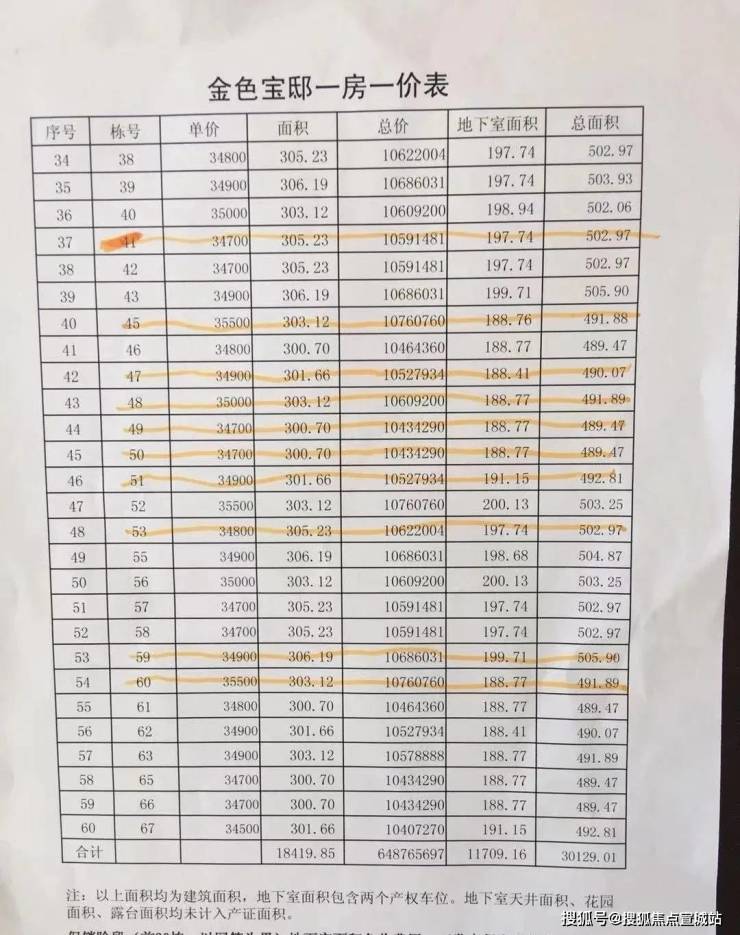 金色宝邸一房一价表
序号 栋号 单价 面积 总价 地下室面积 总面积
34 38 34800 305.23 10622004 197.74 502.97
35 39 34900 306.19 10686031 197.74 503.93
36 40 35000 303.12 10609200 198.94 502.06
37 41 34700 305.23 10591481 197.74 502.97
38 42 34700 305.23 10591481 197.74 502.97
39 43 34900 306.19 10686031 199.71 505.90
40 45 35500 303.12 10760760 188.76 491.88
41 46 34800 300.70 10464360 188.77 489.47
42 47 34900 301.66 10527934 188.41 490.07
43 48 35000 303.12 10609200 188.77 491.89
44 49 34700 300.70 10434290 188.77 489.47
45 50 34700 300.70 10434290 188.77 489.47
46 51 34900 301.66 10527934 191.15 492.81
47 52 35500 303.12 10760760 200.13 503.25
48 53 34800 305.23 10622004 197.74 502.97
49 55 34900 306.19 10686031 198.68 504.87
50 56 35000 303.12 10609200 200.13 503.25
51 57 34700 305.23 10591481 197.74 502.97
52 58 34700 305.23 10591481 197.74 502.97
53 59 34900 306.19 10686031 199.71 505.90
54 60 35500 303.12 10760760 188.77 491.89
55 61 34800 300.70 10464360 188.77 489.47
56 62 34900 301.66 10527934 188.41 490.07
57 63 34900 303.12 10578888 188.77 491.89
58 65 34700 300.70 10434290 188.77 489.47
59 66 34700 300.70 10434290 188.77 489.47
60 67 34500 301.66 10407270 191.15 492.81
合计 18419.85 648765697 11709.16 30129.01
注：以上面积均为建筑面积，地下室面积包含两个产权车位。地下室天井面积、花园
面积、露台面积均未计入产证面积。
搜狐号@搜狐焦点宣城站